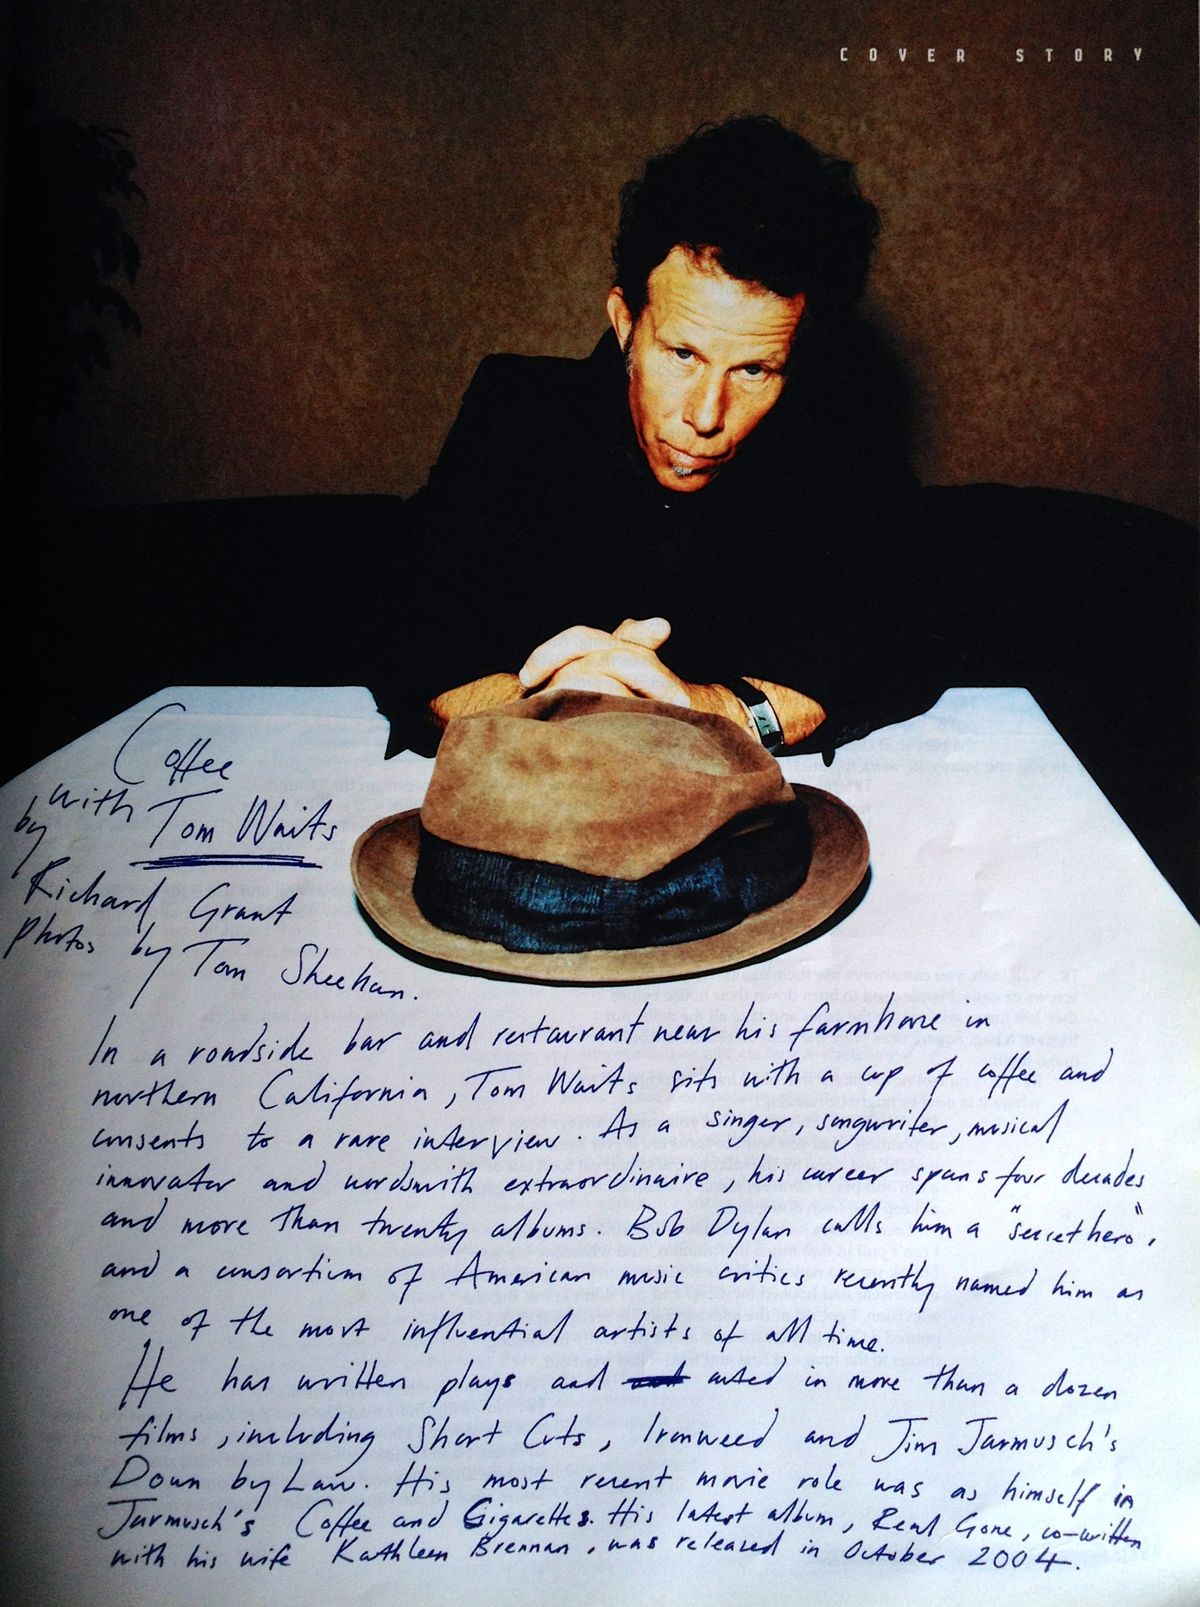 COVER STORY
Coffee
with Tom Waits
by
Richard Grant
photos by Tom Sheehan.
In a roadside bar and restaurant near his farmhouse in
northern California, Tom Waits sits with a cup of coffee and
consents to a rare interview. As a singer, songwriter, musical
innovator and wordsmith extraordinaire, his career spans four decades
and more than twenty albums. Bob Dylan calls him a "secret hero",
and a consortium of American music critics recently named him as
one of the most influential artists of all time.
He has written plays and acted in more than a dozen
films, including Short Cuts, Ironweed and Jim Jarmusch's
Down by Law. His most recent movie role was as himself in
Jarmusch's Coffee and Cigarettes. His latest album, Real Gone, co-written
with his wife Kathleen Brennan, was released in October 2004.